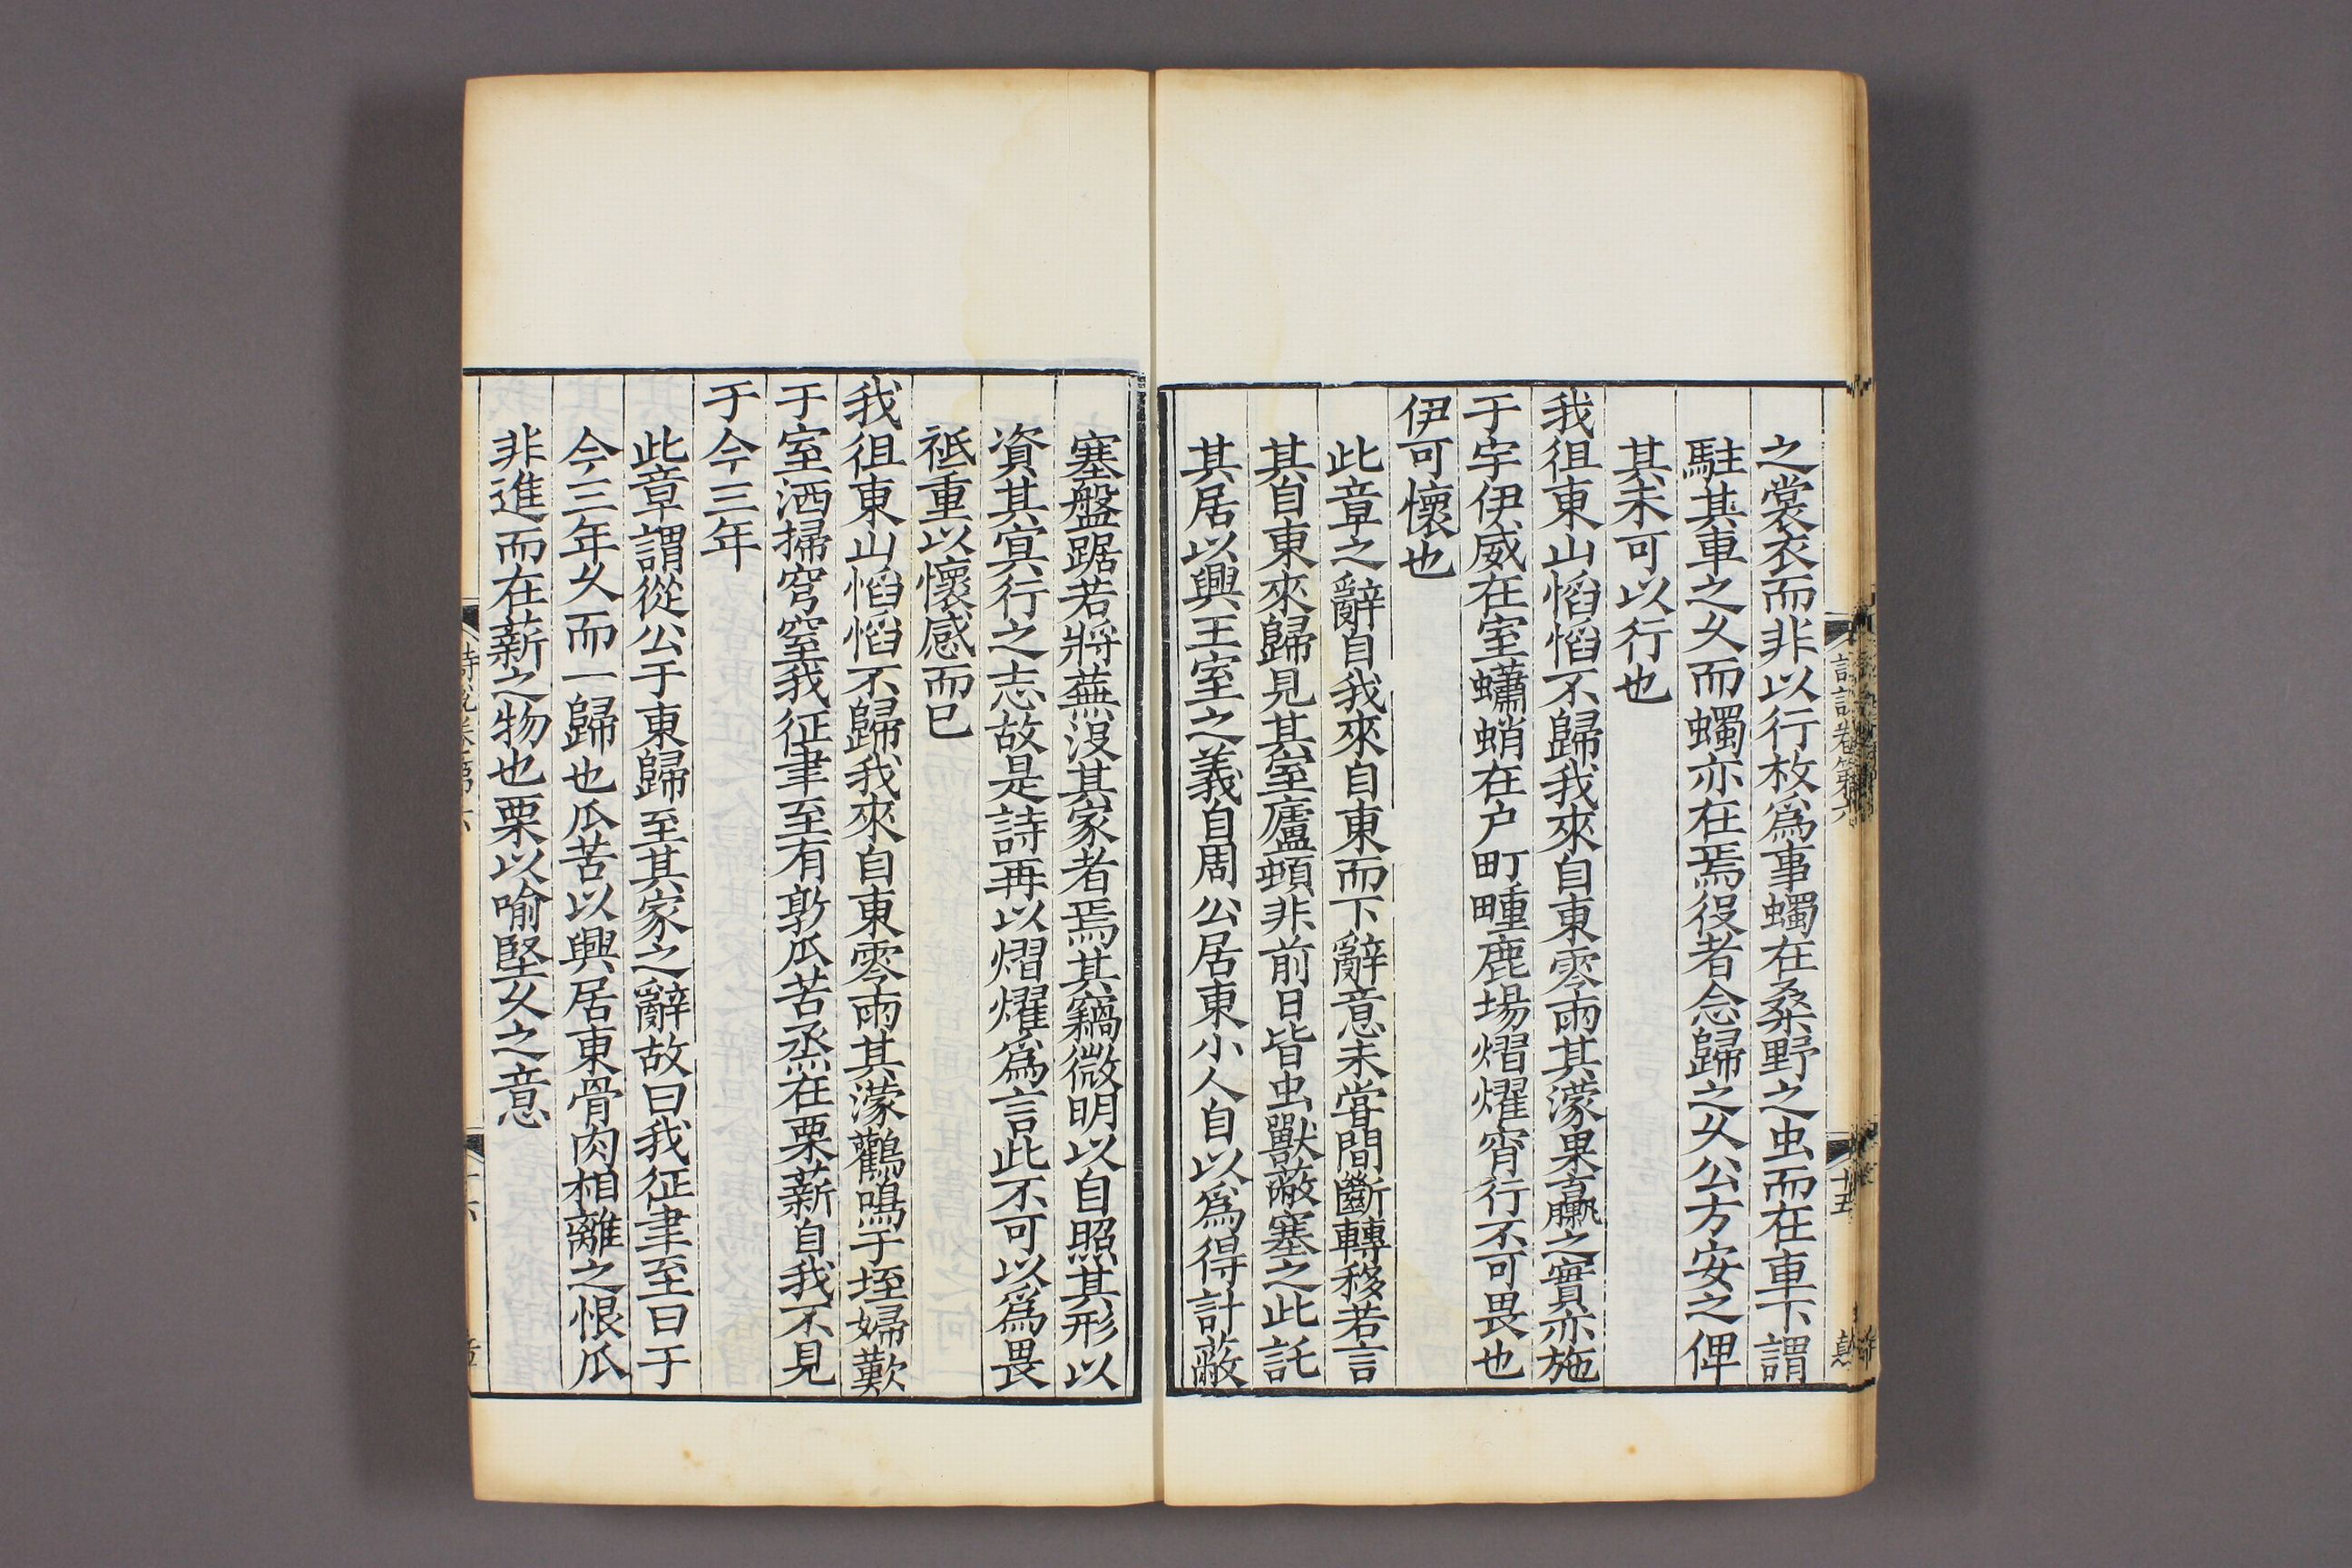 之裳衣而非以行枚爲事蠋在桑野之虫而在車下謂
駐其車之久而蠋亦在焉役者念歸之久公方安之俾
其未可以行也
我徂東山慆慆不歸我來自東零雨其濛果臝之實亦施
于宇伊威在室蠨蛸在户町畽鹿場熠燿宵行不可畏也
伊可懷也
此章之辭自我來自東而下辭意未甞間斷轉移若言
其自東來歸見其室廬頓非前日皆虫獸蔽塞之此託
其居以興王室之義自周公居東小人自以爲得計蔽
塞盤踞若將蕪没其家者焉其竊微明以自照其形以
資其㝠行之志故是詩再以熠燿爲言此不可以爲畏
祗重以懷感而已
我徂東山慆慆不歸我來自東零雨其濛鸛鳴于垤婦歎
于室洒掃穹窒我征聿至有敦瓜苦烝在栗薪自我不見
于今三年
此章謂從公于東歸至其家之辭故曰我征聿至曰于
今三年久而一歸也瓜苦以興居東骨肉相離之恨瓜
非進而在薪之物也栗以喻堅久之意